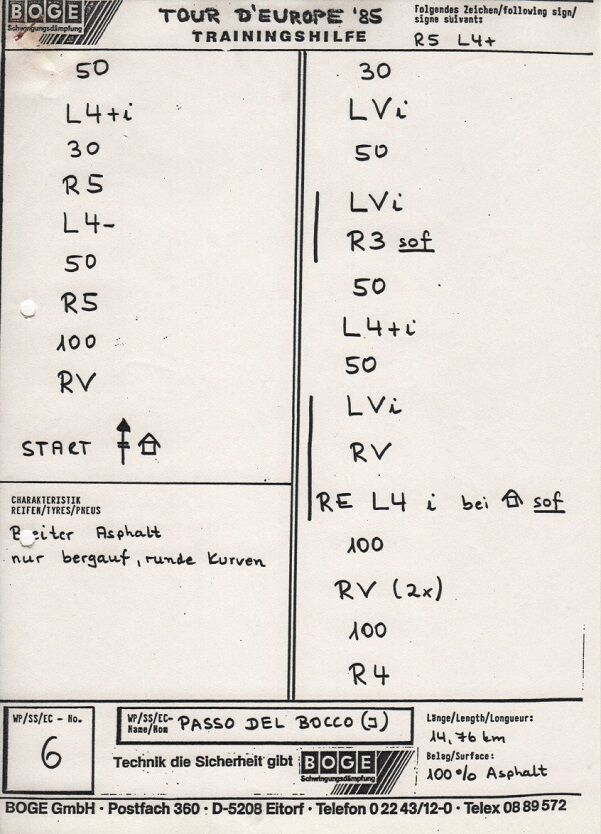 BOGE
Schwingungsdämpfung
TOUR D'EUROPE '85
TRAININGSHILFE
Folgendes Zeichen/following sign/
signe suivant:
R5 L4+
50
L4+i
30
R5
L4-
50
R5
100
RV
START
CHARAKTERISTIK
REIFEN/TYRES/PNEUS
Breiter Asphalt
nur bergauf, runde Kurven
30
LVi
50
LVi
R3 sof
50
L4+i
50
LVi
RV
RE L4 i bei sof
100
RV (2x)
100
R4
WP/SS/EC - No.
6
WP/SS/EC-
Name/Nom
PASSO DEL BOCCO (J)
Technik die Sicherheit gibt
BOGE
Schwingungsdämpfung
Länge/Length/Longueur:
14,76 km
Belag/Surface:
100% Asphalt
BOGE GmbH · Postfach 360 · D-5208 Eitorf · Telefon 0 22 43/12-0 · Telex 08 89 572